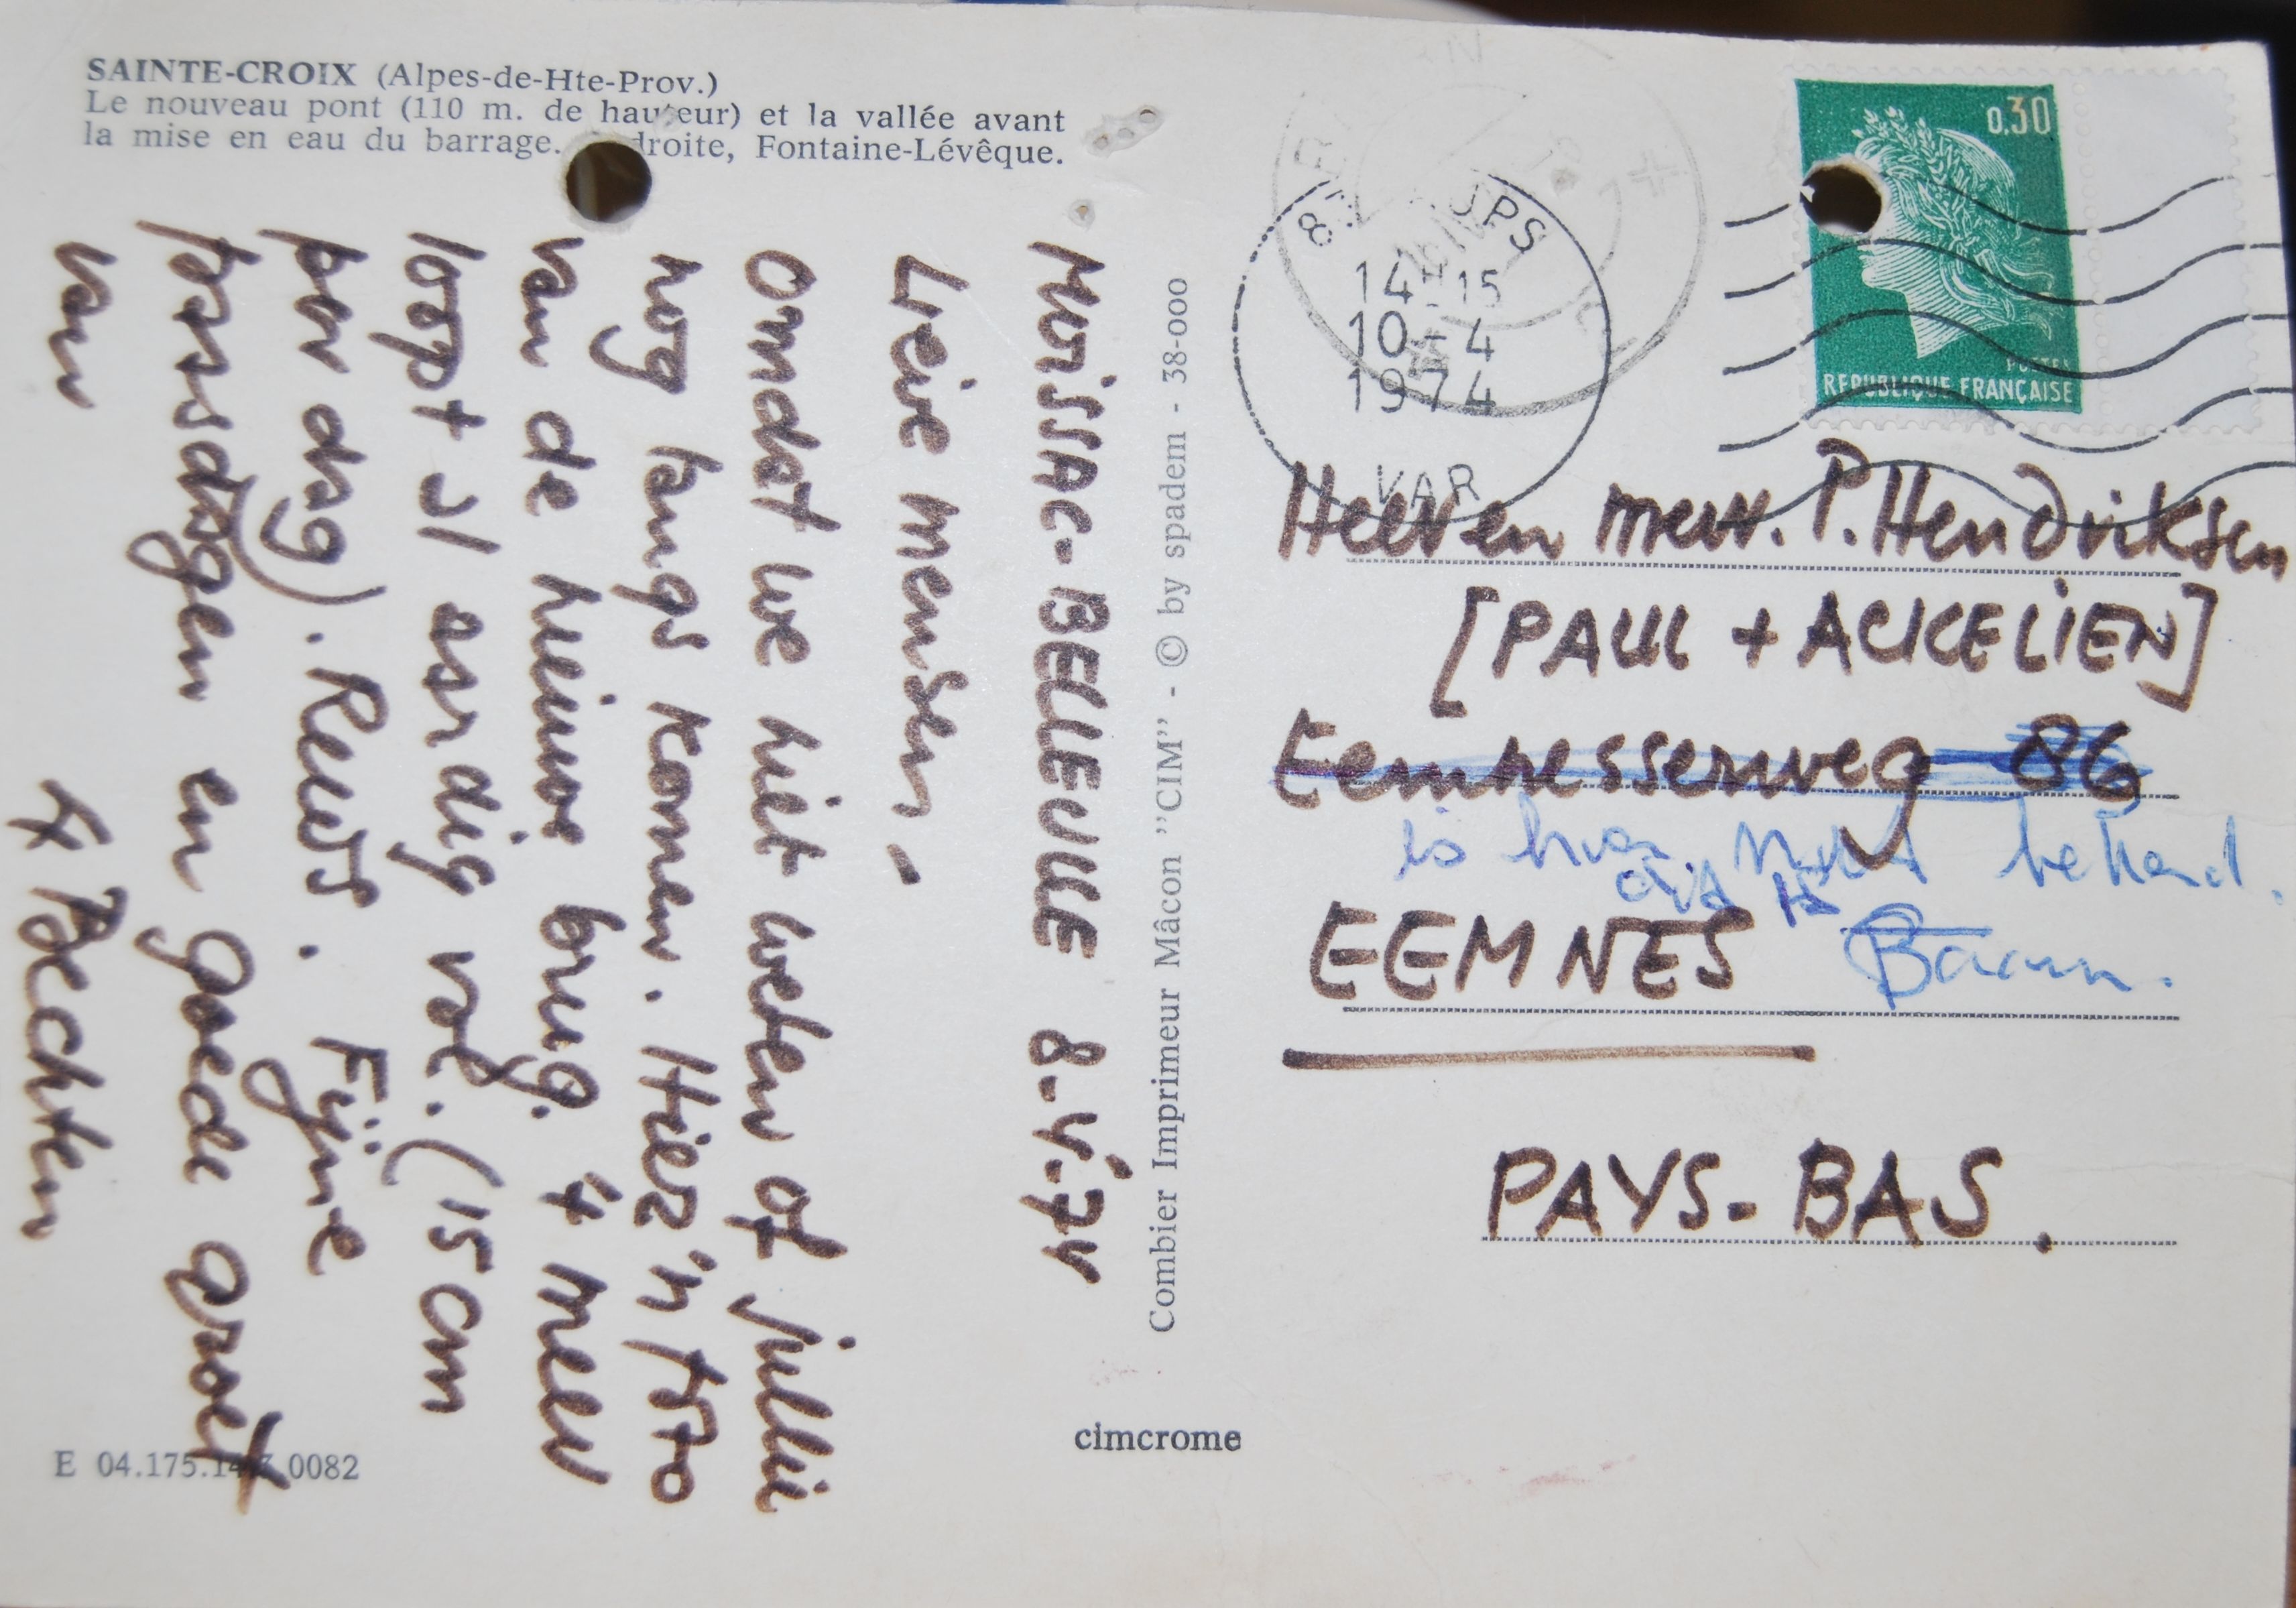 SAINTE-CROIX (Alpes-de-Hte-Prov.)
Le nouveau pont (110 m. de hauteur) et la vallée avant
la mise en eau du barrage. droite, Fontaine-Lévêque.
MOISSAC-BELLEVUE 8.4.74
Lieve mensen,
Omdat we niet weten of jullie
nog langs komen. Hier 'n foto
van de nieuwe brug. 't meer
loopt al aardig vol. (15 cm
per dag). Rest. Fijne
paasdagen en goede groet
van
4 Bechten
E 04.175.14 0082
Combier Imprimeur Mâcon "CIM" - © by spadem - 38-000
cimcrome
0,30
POSTES
REPUBLIQUE FRANÇAISE
83 UPS
14H15
10-4
1974
VAR
Heer en mevr. P. Hendriksen
[PAUL + ACKELIEN]
Eemnesserweg 86
is hier niet bekend.
EEMNES Baarn.
PAYS-BAS.